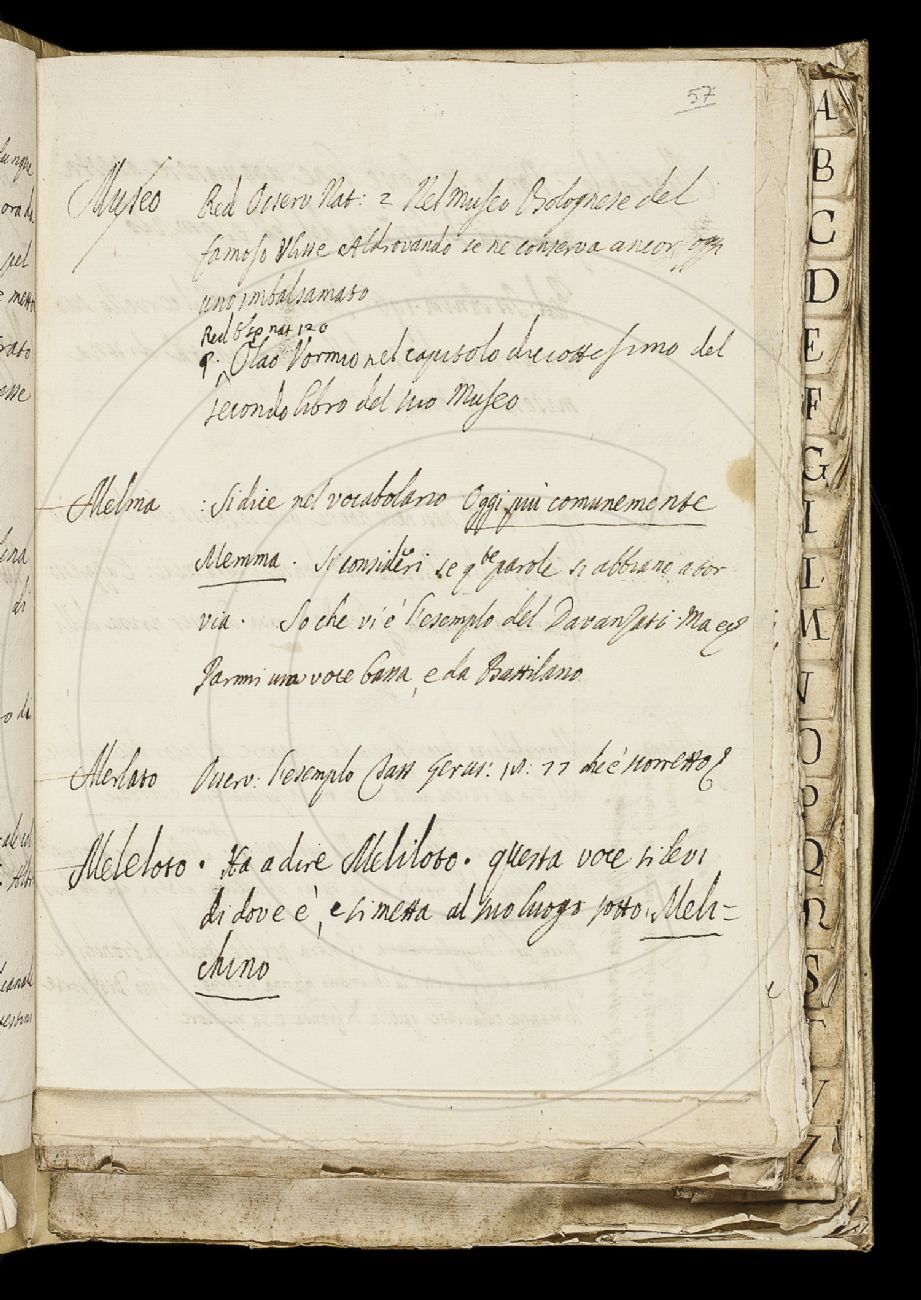 57
Museo Red Osserv Nat: 2 Nel museo Bolognese del
famoso Ulisse Aldrovando se ne conserva ancor oggi
uno imbalsamato
Red Esp nat 120
q. Olao Vormio nel capitolo diciottesimo del
secondo libro del suo Museo
Melma : si dice nel vocabolario Oggi più comunemente
Memma. Si consideri se q.te parole si abbiano a tor
via. So che vi è l'esemplo del Davanzati. Ma
Parmi una voce bassa, e da Battilano
Merlato Osserv: l'esemplo Tass Gerus: 18: 77 che è scorretto
Meleloto. Ha a dire Meliloto. questa voce si levi
di dove è, e si metta al suo luogo sotto Meli=
chino
A
B
C
D
E
F
G
I
L
M
N
O
P
Q
R
S
T
V
Z